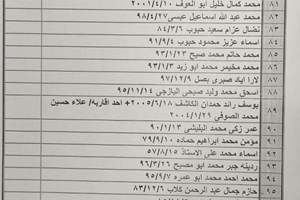 ٨١ محمد كمال خليل ابو العوف ٢٠٠١/٤/١٠
٨٢ محمد عبد الله اسماعيل عيسى ٩٨/٤/٢٧
٨٣ نضال عزام سعيد حبوب ٨٤/٣/٦
٨٤ اسماء عزيز محمود حبوب ٩١/٩/٤
٨٥ محمد حاتم محمد صبح ٩٣/١/٢٣
٨٦ محمد مخيمر محمد ابو زيد ٩٣/١/٣
٨٧ لارا اياد صبري بصل ٩٧/١٢/٩
٨٨ اسحق محمد وليد صبحي اليازجي ٩٥/١١/١٤
٨٩ يوسف رائد حمدان الكاشف ٢٠٠٥/٦/١٨+ احد اقاربه/ علاء حسين
محمد الصوفي ٢٠٠٤/١/٢٩
٩٠ عمر زكي محمد البلبيشي ٩٠/١/١٣
٩١ مؤمن محمد ابراهيم حماده ٧٩/٩/١٠
٩٢ اسماء محمد علي الاستاذ ٥٧/٨/١٥
٩٣ ردينه جبر محمد ابو مصبح ٩٦/٣/٢٦
٩٤ محمد احمد محمد ابو عمره ٩٥/٩/٧
٩٥ حازم جمال عبد الرحمن كلاب ٨٣/١٢/٦